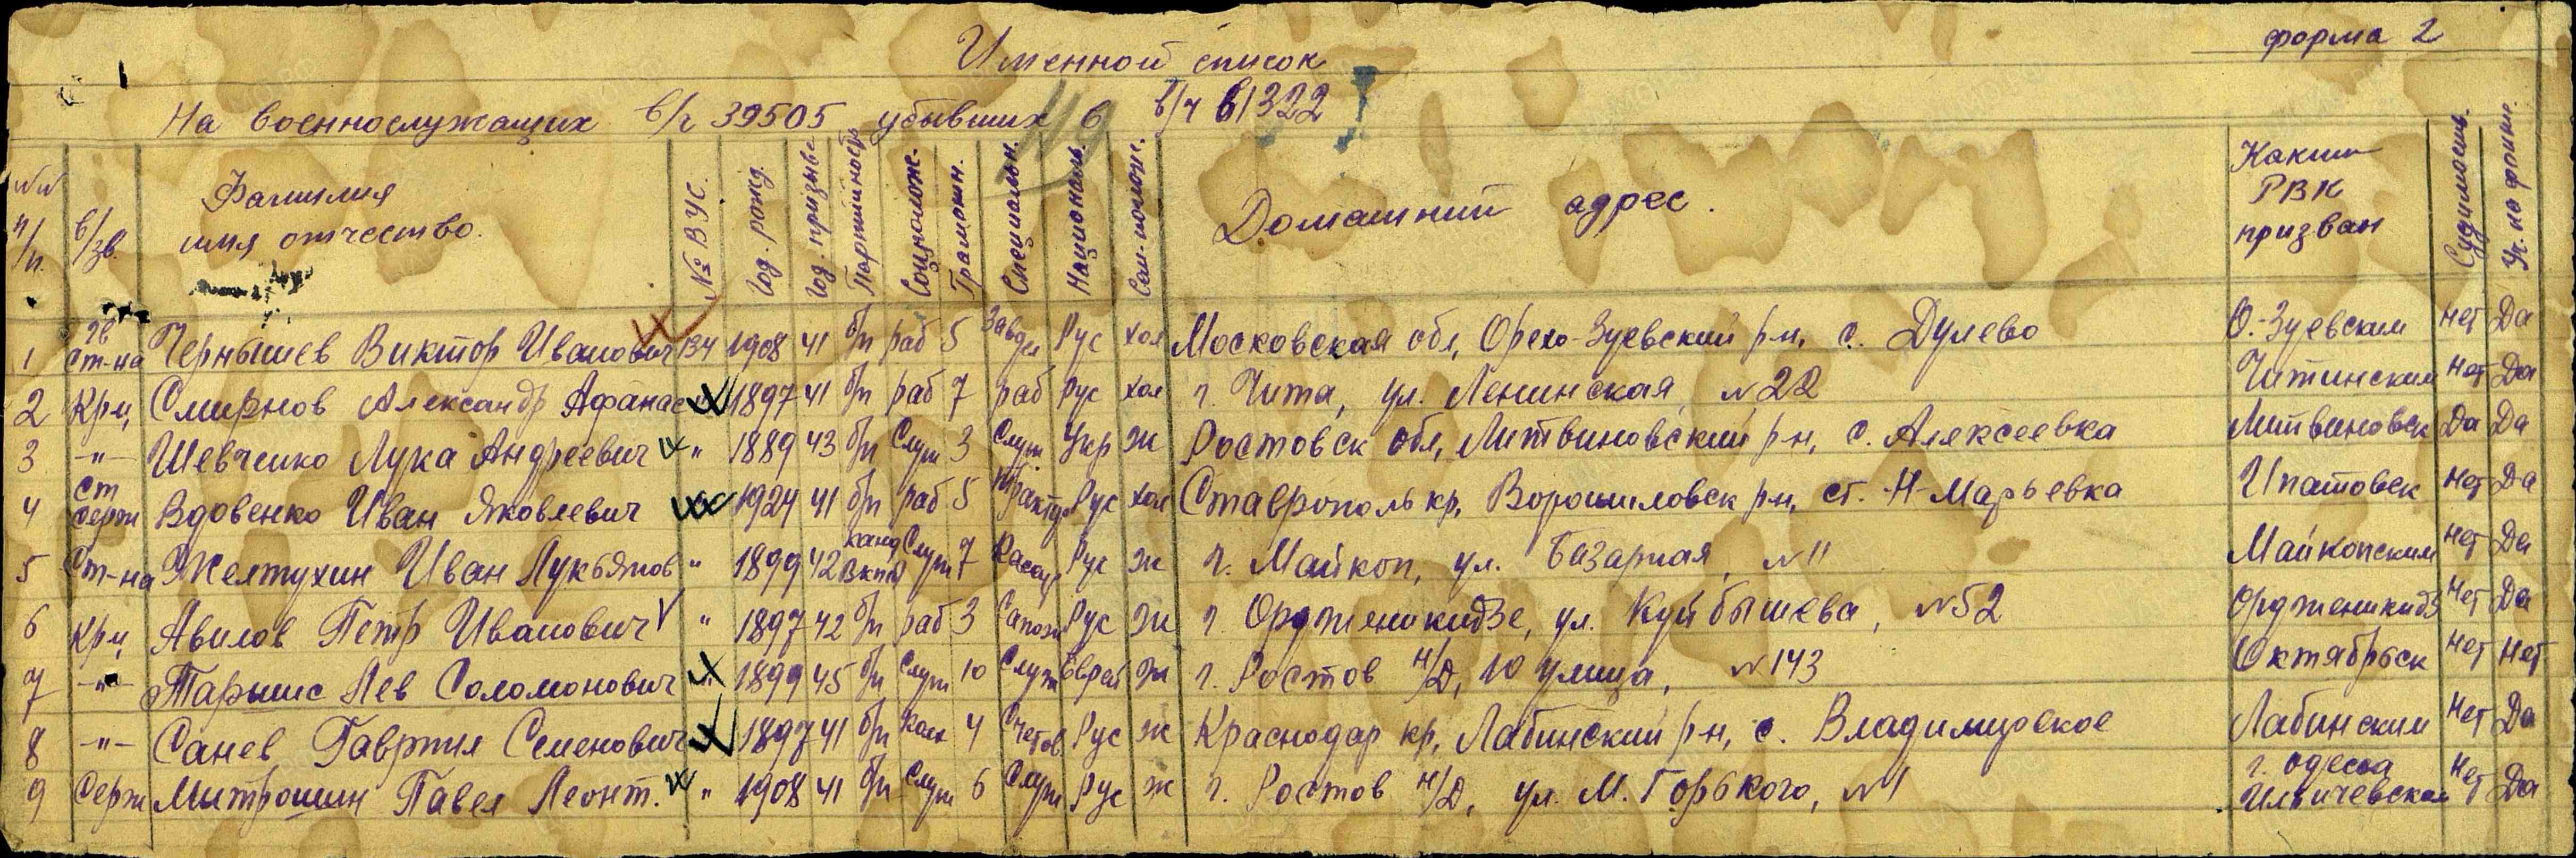 форма 2
Именной список
На военнослужащих в/ч 39505 убывших в в/ч 61322
№№ п/п. в/зв. Фамилия имя отчество. № ВУС. Год. рожд. Год. призыв- Партийность Социолож. Грамотн. Специальн. Националь. Сем-полож. Домашний адрес. Каким РВК призван Судимость. Уч. на фронте.
1 гв ст-на Чернышев Виктор Иванович 134 1908 41 б/п раб 5 Завдел Рус хол Московская обл, Орехо-Зуевский р-н, с. Дулево О.-Зуевским нет Да
2 Кр-ц Смирнов Александр Афанас " 1897 41 б/п раб 7 раб Рус хол г. Чита, ул. Ленинская, №22 Читинским нет Да
3 -"- Шевченко Лука Андреевич " 1889 43 б/п Служ 3 Служ Укр Ж Ростовск обл, Литвиновский р-н, с. Алексеевка Литвиновск Да Да
4 Ст серж Вдовенко Иван Яковлевич " 1924 41 б/п раб 5 Рус хол Ставрополь кр, Ворошиловск р-н, ст. Н-Марьевка Ипатовск нет Да
5 Ст-на Желтухин Иван Лукьянов " 1899 42 канд ВКПб Служ 7 Рус Ж г. Майкоп, ул. Базарная, №11 Майкопским нет Да
6 Кр-ц Авилов Петр Иванович " 1897 42 б/п раб 3 Сапож Рус Ж г Орджоникидзе, ул. Куйбышева, №52 Орджоникидз Нет Да
7 -"- Тарышис Лев Соломонович " 1899 45 б/п Служ 10 Служ Еврей Ж г. Ростов н/Д, 10 улица, №143 Октябрьск нет нет
8 -"- Санев Гавриил Семенович " 1897 41 б/п Колх 4 Счетов Рус Ж Краснодар кр, Лабинский р-н, с. Владимировское Лабинским Нет Да
9 Серж Митрошин Павел Леонт. " 1908 41 б/п Служ 6 Служ Рус Ж г. Ростов н/Д, ул. М. Горького, №1 г. Одесса Ильичевская Нет Да